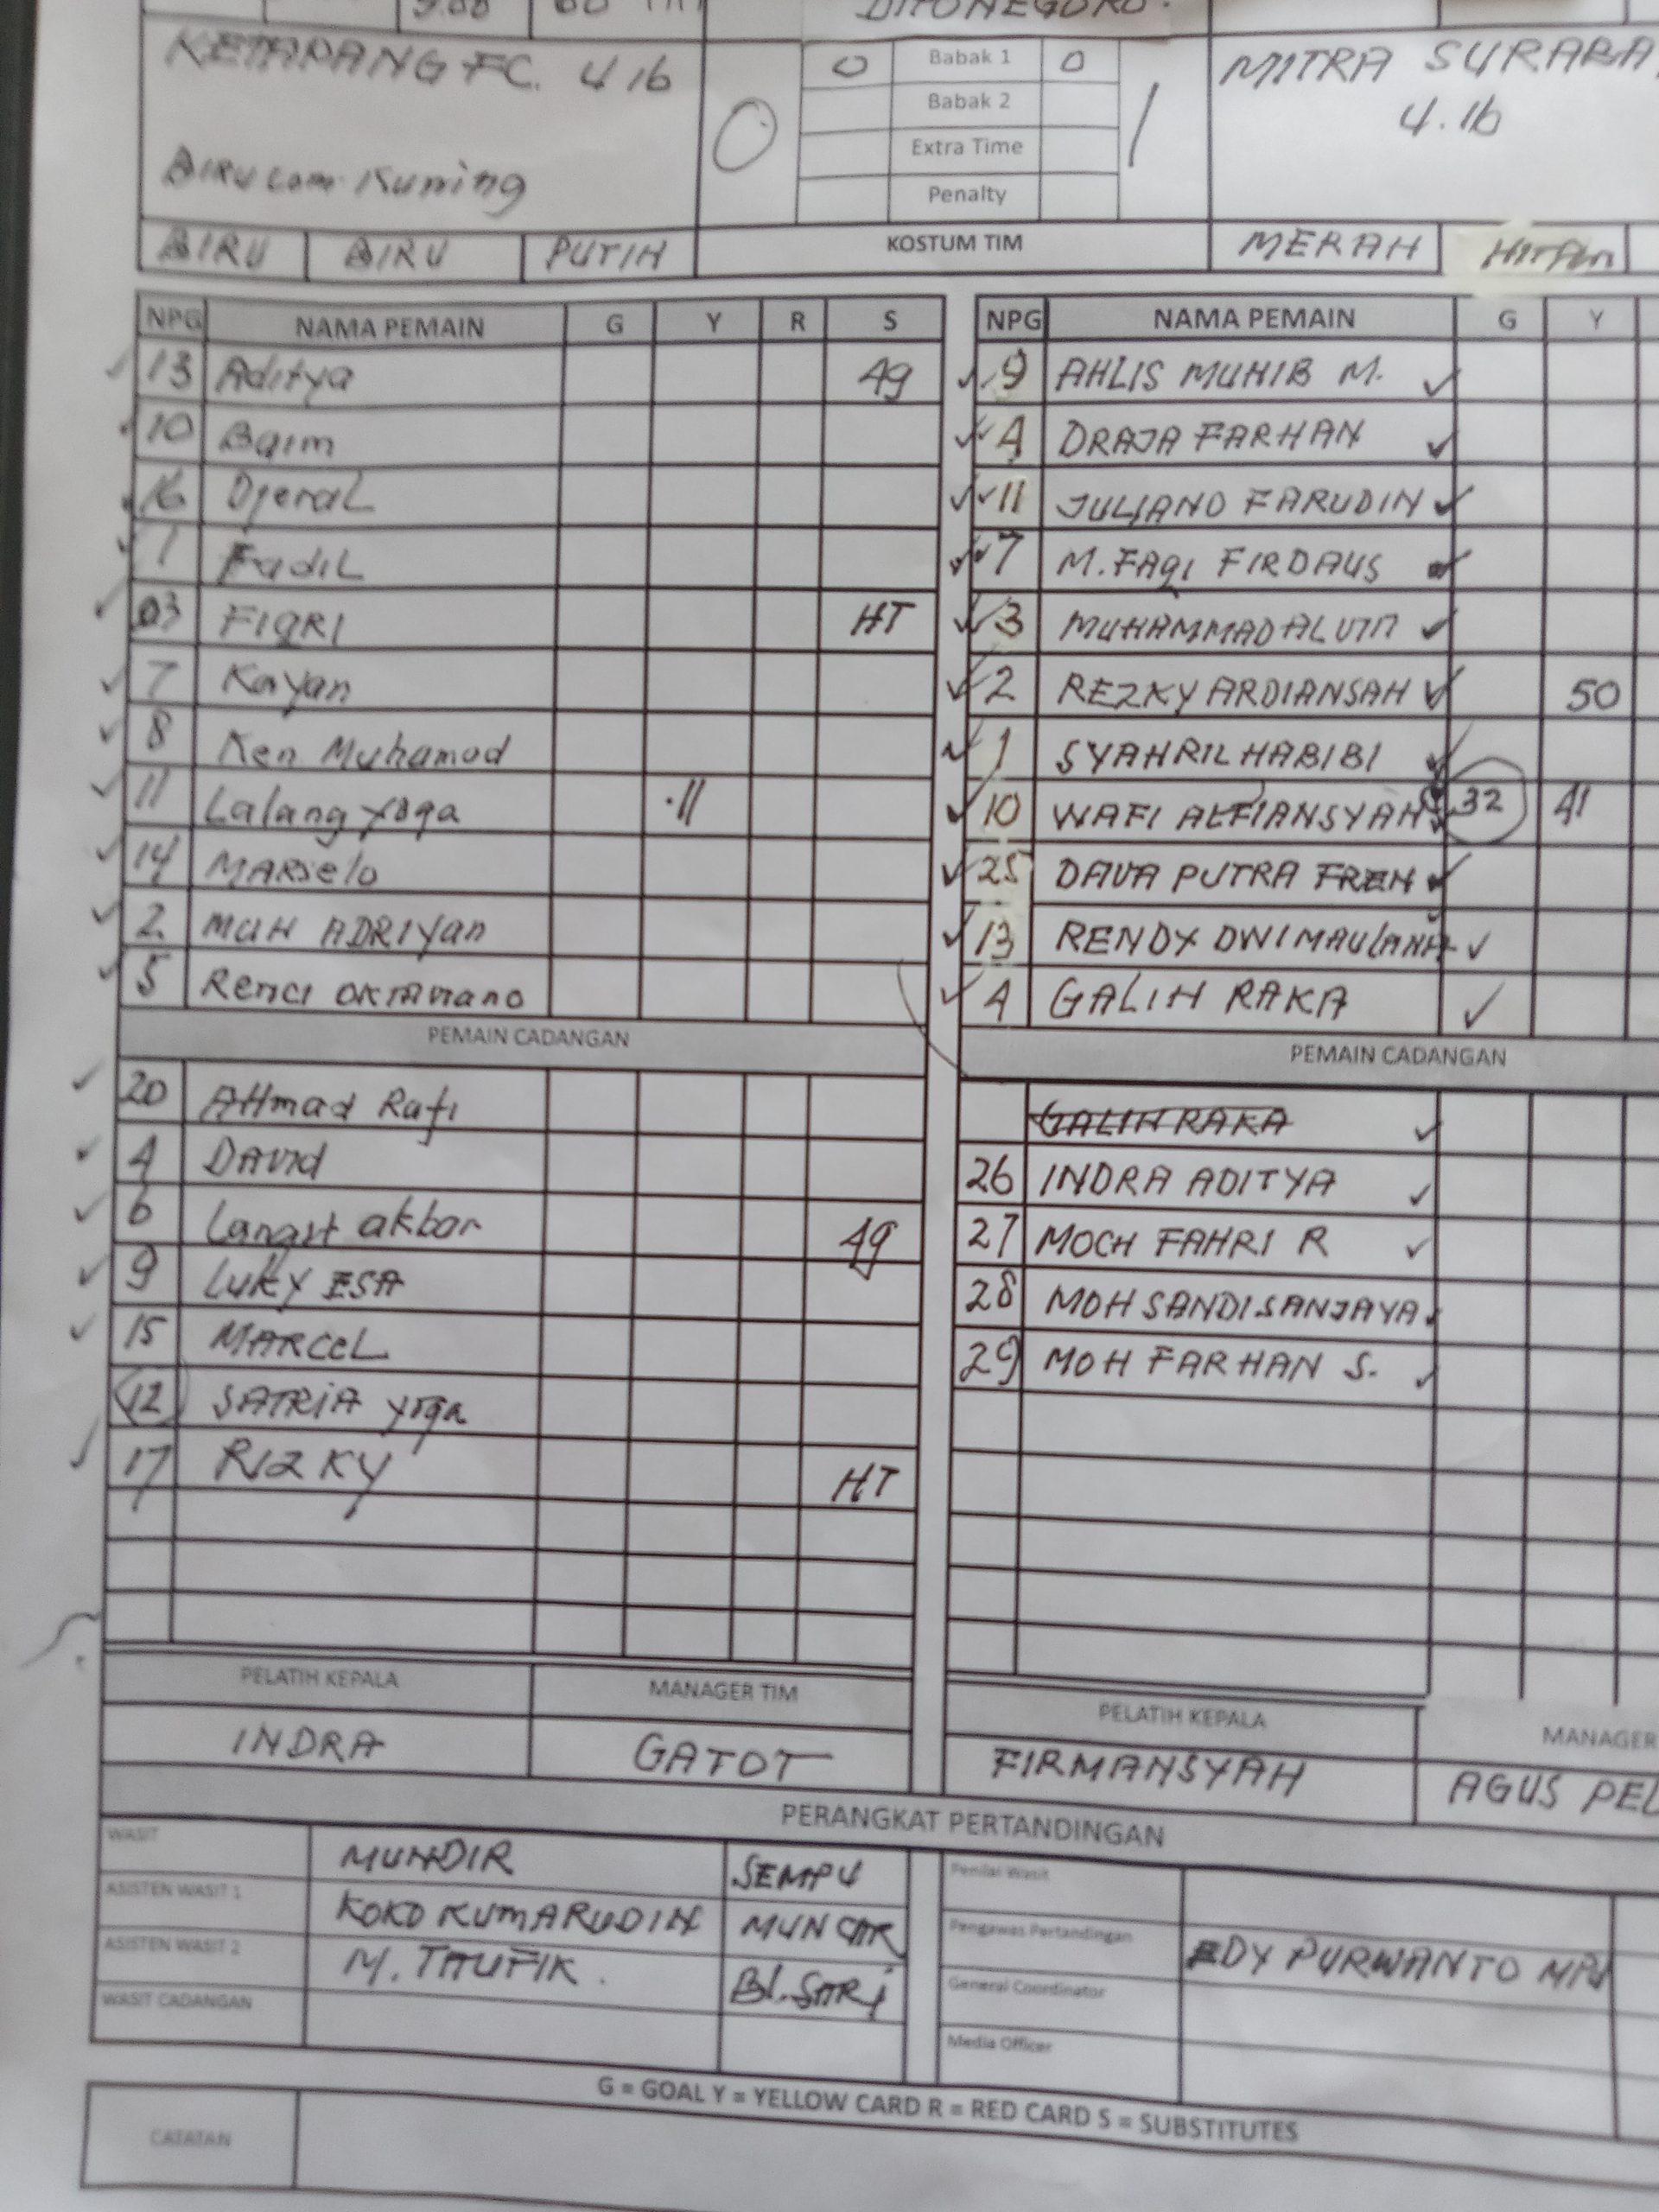 KETAPANG FC. 4 16
Biru Lam. Kuning
0
0 Babak 1 0
Babak 2
Extra Time
Penalty
1
MITRA SURABA
4.16
BIRU BIRU PUTIH KOSTUM TIM MERAH HITAM
NPG NAMA PEMAIN G Y R S
13 Aditya 49
10 Baim
16 Djeral
1 Fadil
03 FIQRI HT
7 Kayan
8 Ken Muhamad
11 Lalang yoga 11
14 MARselo
2 MUH ADRIYan
5 Renci OKTAViano
PEMAIN CADANGAN
20 AHmad Rafi
4 DAVId
6 Langit akbar 49
9 LUKY ESA
15 MARCEL
12 SATRIA yoga
17 RIZKY HT
PELATIH KEPALA MANAGER TIM
INDRA GATOT
NPG NAMA PEMAIN G Y
9 AHLIS MUHIB M.
4 DRAJA FARHAN
11 JULIANO FARUDIN
7 M. FAQI FIRDAUS
3 MUHAMMAD ALVIN
2 REZKY ARDIANSAH 50
1 SYAHRIL HABIBI
10 WAFI ALFIANSYAH 32 41
25 DAVA PUTRA FREN
13 RENDY DWI MAULANA
4 GALIH RAKA
PEMAIN CADANGAN
GALIH RAKA
26 INDRA ADITYA
27 MOCH FAHRI R
28 MOH SANDI SANJAYA
29 MOH FARHAN S.
PELATIH KEPALA MANAGER
FIRMANSYAH AGUS PEL
PERANGKAT PERTANDINGAN
WASIT MUNDIR SEMPU
ASISTEN WASIT 1 KOKO KUMARUDIN MUNCAR
ASISTEN WASIT 2 M. TAUFIK. Bl. SARi
WASIT CADANGAN
Penilai Wasit
Pengawas Pertandingan EDY PURWANTO
General Coordinator
Media Officer
G = GOAL Y = YELLOW CARD R = RED CARD S = SUBSTITUTES
CATATAN